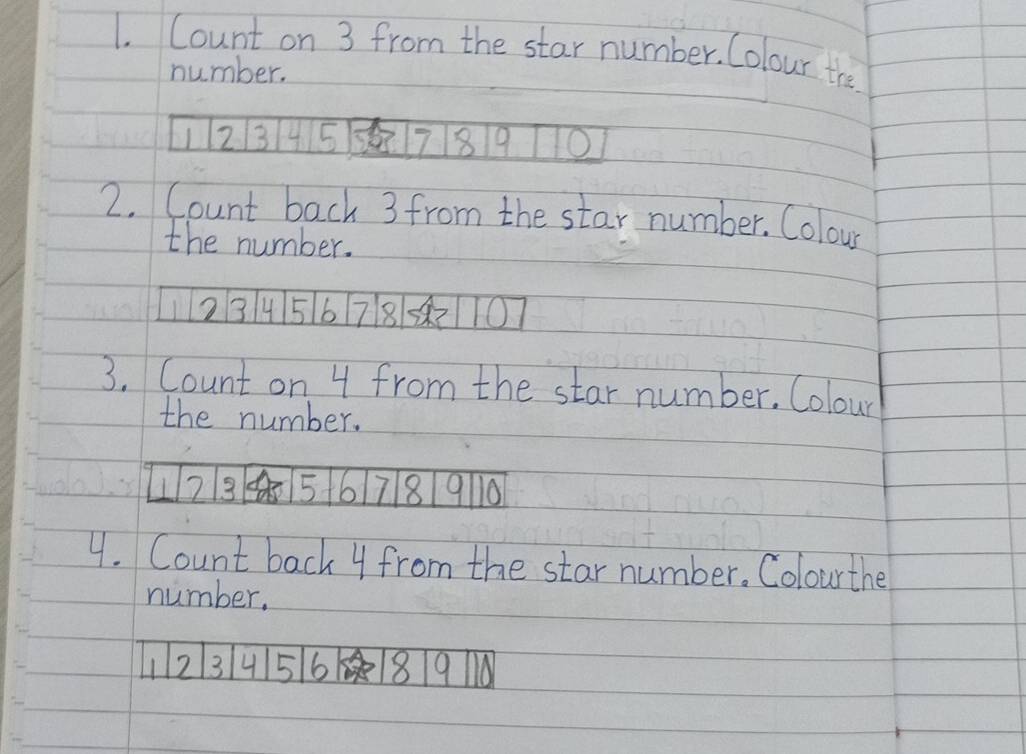 1. Count on 3 from the star number. Colour the
number.
1 2 3 4 5 6 7 8 9 10
2. Count back 3 from the star number. Colour
the number.
1 2 3 4 5 6 7 8 10
3. Count on 4 from the star number. Colour
the number.
1 2 3 5 6 7 8 9 10
4. Count back 4 from the star number. Colour the
number.
1 2 3 4 5 6 8 9 10